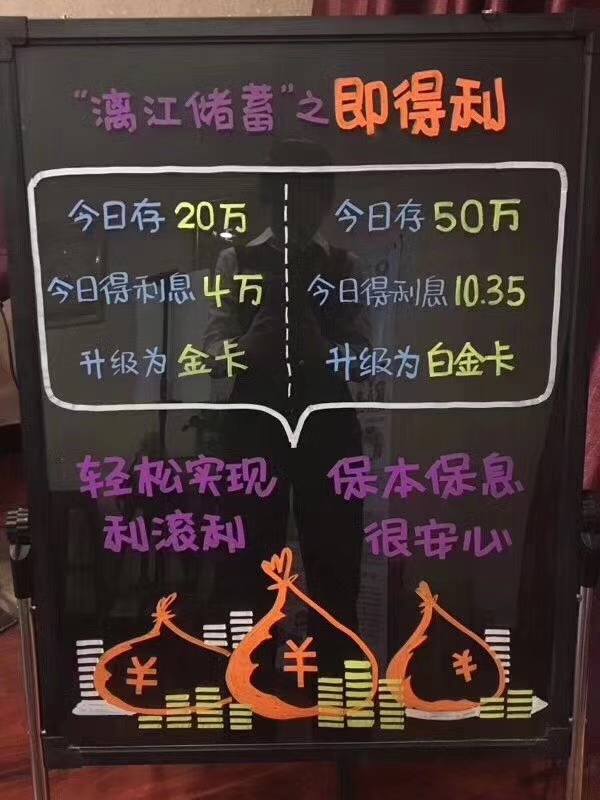 “漓江储蓄”之即得利
今日存20万
今日得利息4万
升级为金卡
今日存50万
今日得利息10.35
升级为白金卡
轻松实现
利滚利
保本保息
很安心
¥
¥
¥